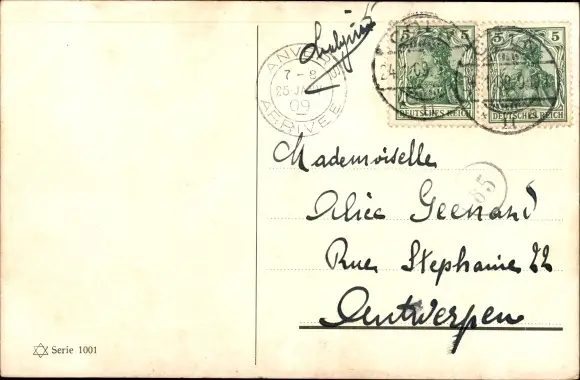 ANVERS
7-8
25 JA
09
ARRIVEE
5 5
DEUTSCHES REICH
5 5
DEUTSCHES REICH
Mademoiselle
Alice Geenard
85
Rue Stephanie 22
Antwerpen
Serie 1001